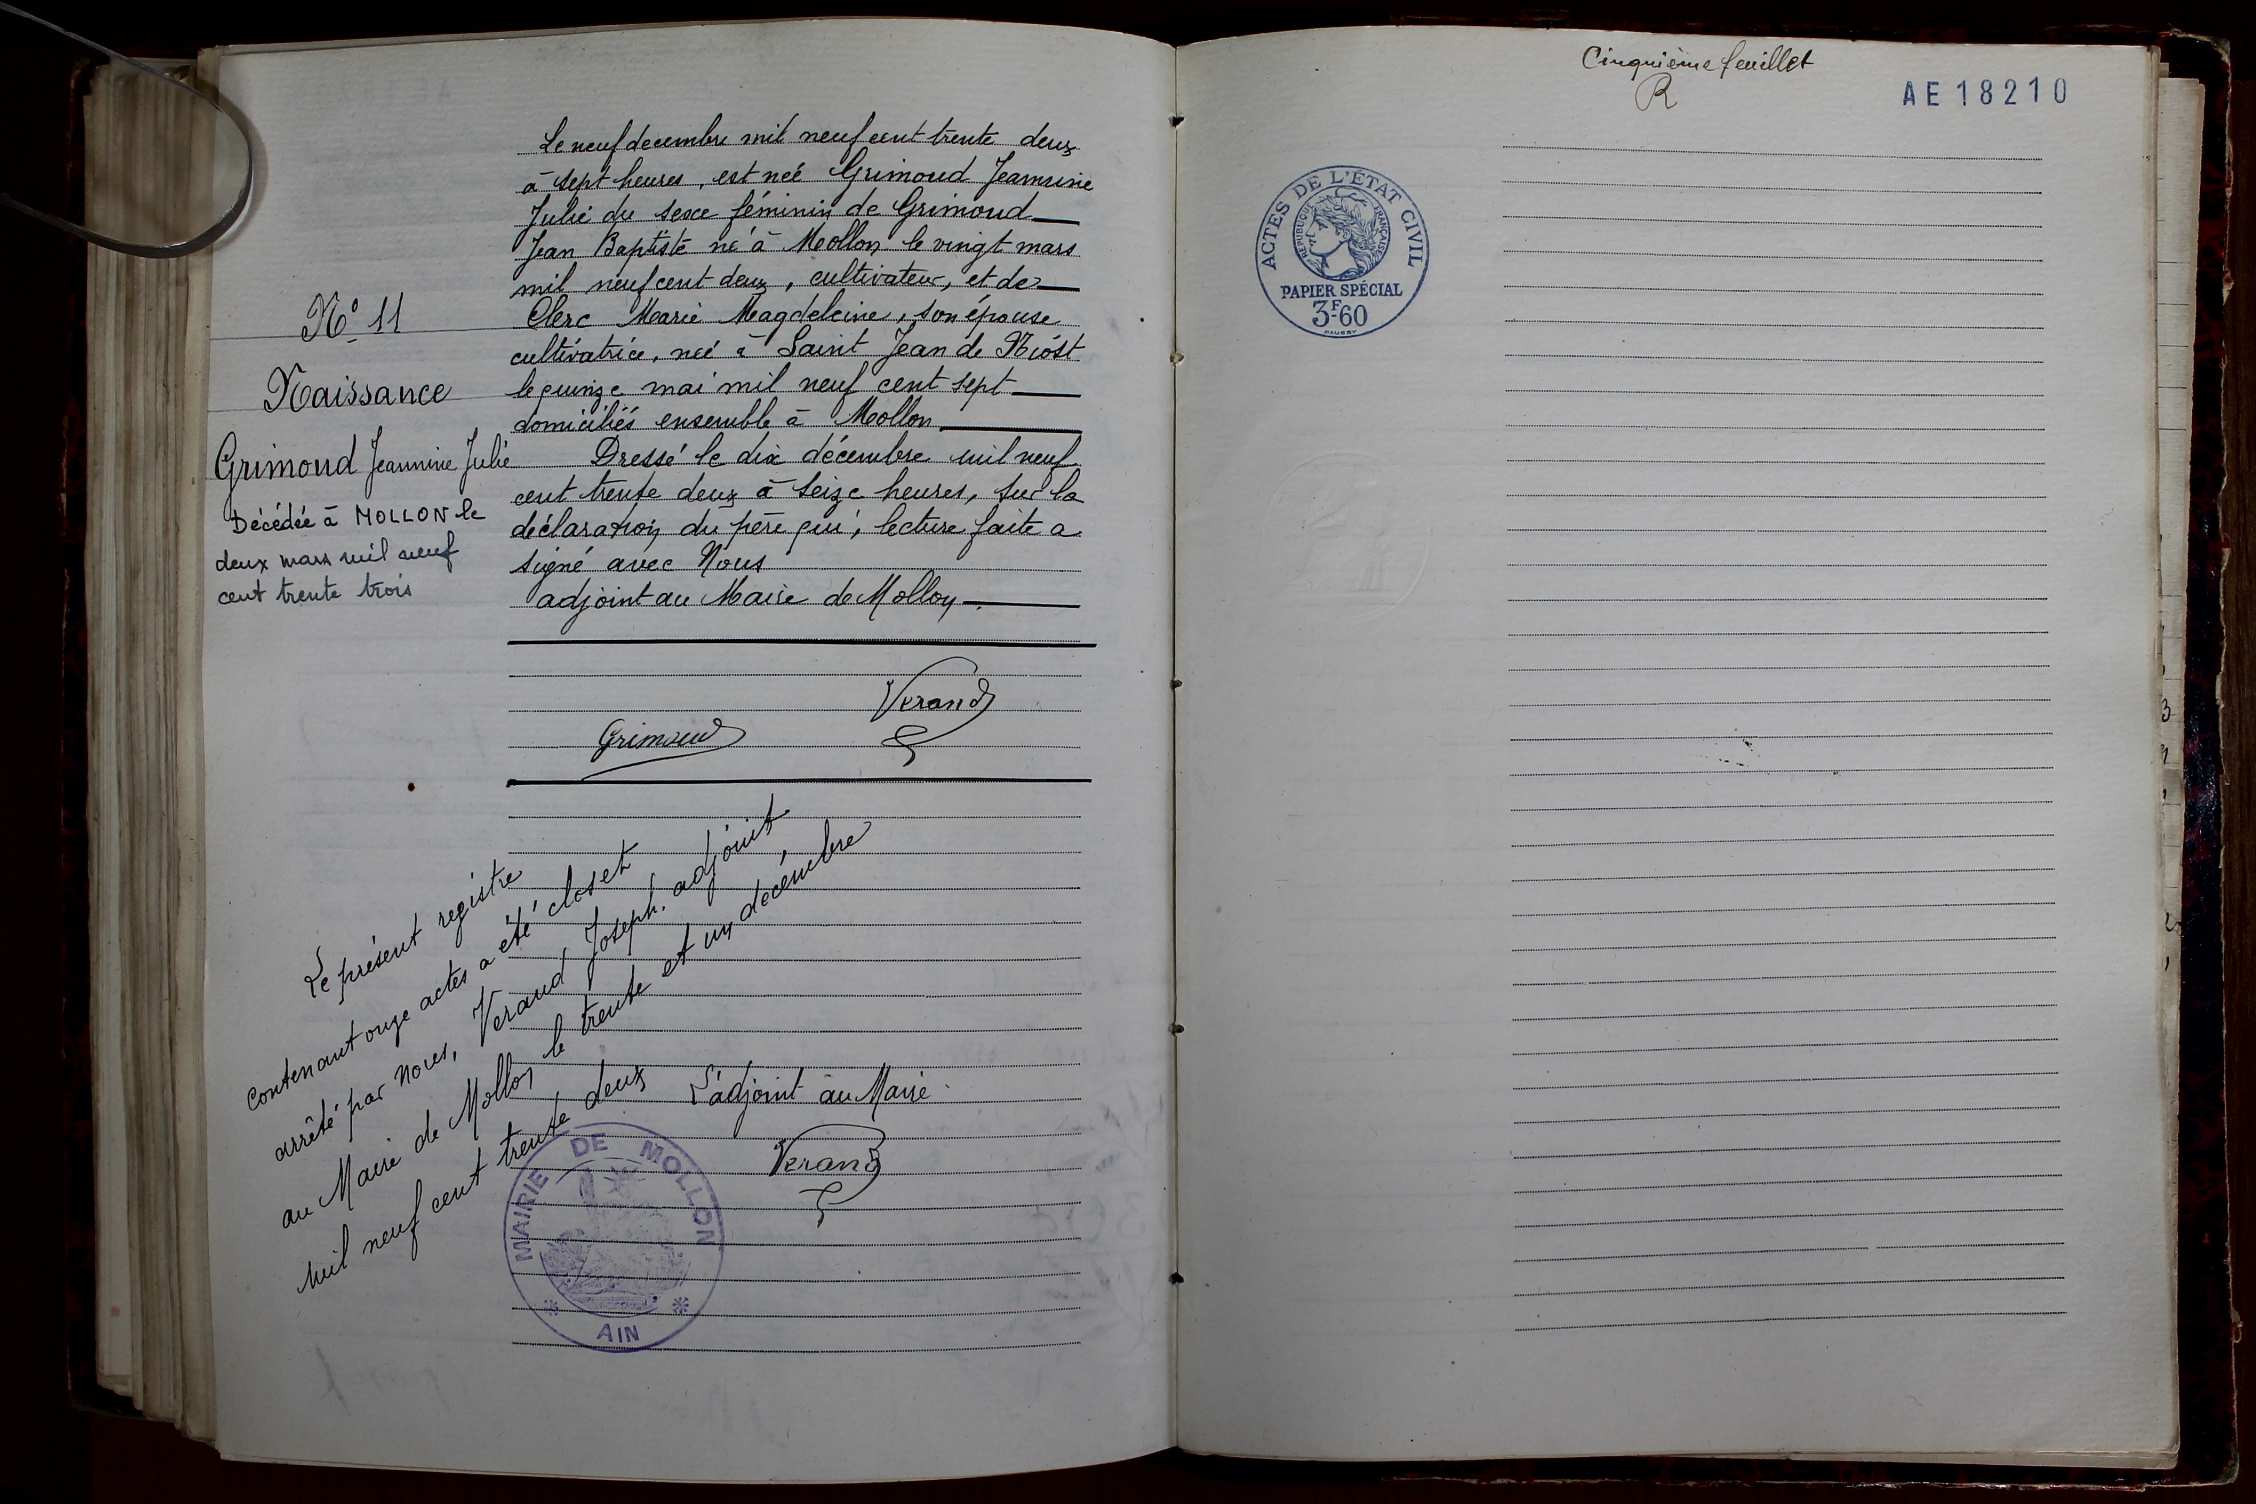 N° 11
Naissance
Grimoud Jeannine Julie
Décédée à MOLLON le
deux mars mil neuf
cent trente trois
Le neuf decembre mil neuf cent trente deux
à sept heures, est née Grimoud Jeannine
Julie du sexe féminin de Grimoud
Jean Baptiste né à Mollon le vingt mars
mil neuf cent deux, cultivateur, et de
Clerc Marie Magdeleine, son épouse
cultivatrice, née à Saint Jean de Niost
le quinze mai mil neuf cent sept
domiciliés ensemble à Mollon
Dressé le dix décembre mil neuf
cent trente deux à seize heures, sur la
déclaration du père qui, lecture faite a
signé avec Nous
adjoint au Maire de Mollon
Verand
Grimoud
Le présent registre
contenant onze actes a été clos et
arrêté par nous, Verand Joseph. adjoint
au Maire de Mollon le trente et un décembre
mil neuf cent trente deux
L'adjoint au Maire
Verand
MAIRIE DE MOLLON
AIN
Cinquième feuillet
R
AE18210
ACTES DE L'ETAT CIVIL
REPUBLIQUE FRANÇAISE
PAPIER SPÉCIAL
3F60